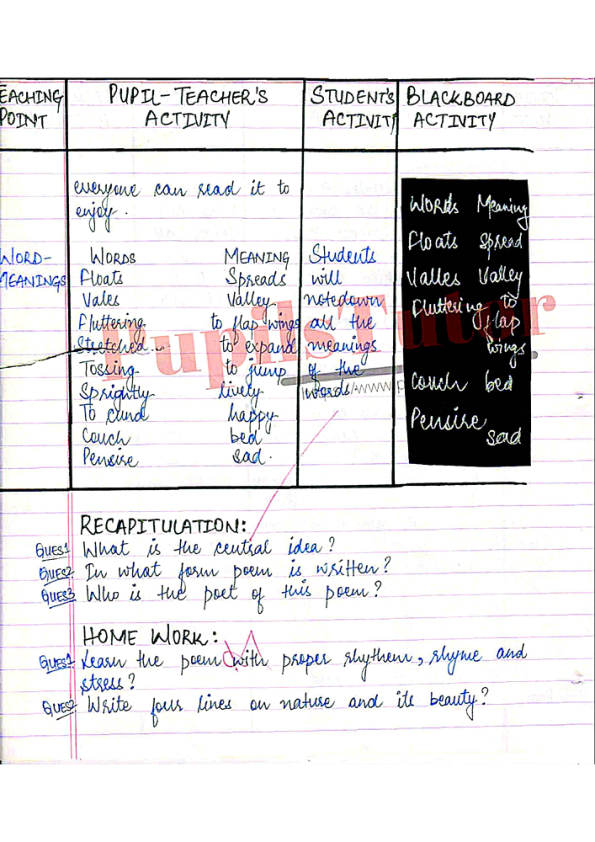 EACHING POINT
PUPIL-TEACHER'S ACTIVITY
STUDENT'S ACTIVITY
BLACKBOARD ACTIVITY
everyone can read it to
enjoy.
WORD-
MEANINGS
WORDS MEANING
Floats Spreads
Vales Valley
Fluttering to flap wings
Stretched to expand
Tossing to jump
Sprightly lively
To cund happy
Couch bed
Pensive sad.
Students
will
notedown
all the
meanings
of the
words
Words Meaning
Floats Spread
Valles Valley
Fluttering to
flap
wings
Couch bed
Pensive
sad
PupilsTutor
RECAPITULATION:
Ques1 What is the central idea?
Ques2 In what form poem is written?
Ques3 Who is the poet of this poem?
HOME WORK:
Ques1 Learn the poem with proper rhythem, rhyme and
stress?
Ques2 Write four lines on nature and its beauty?